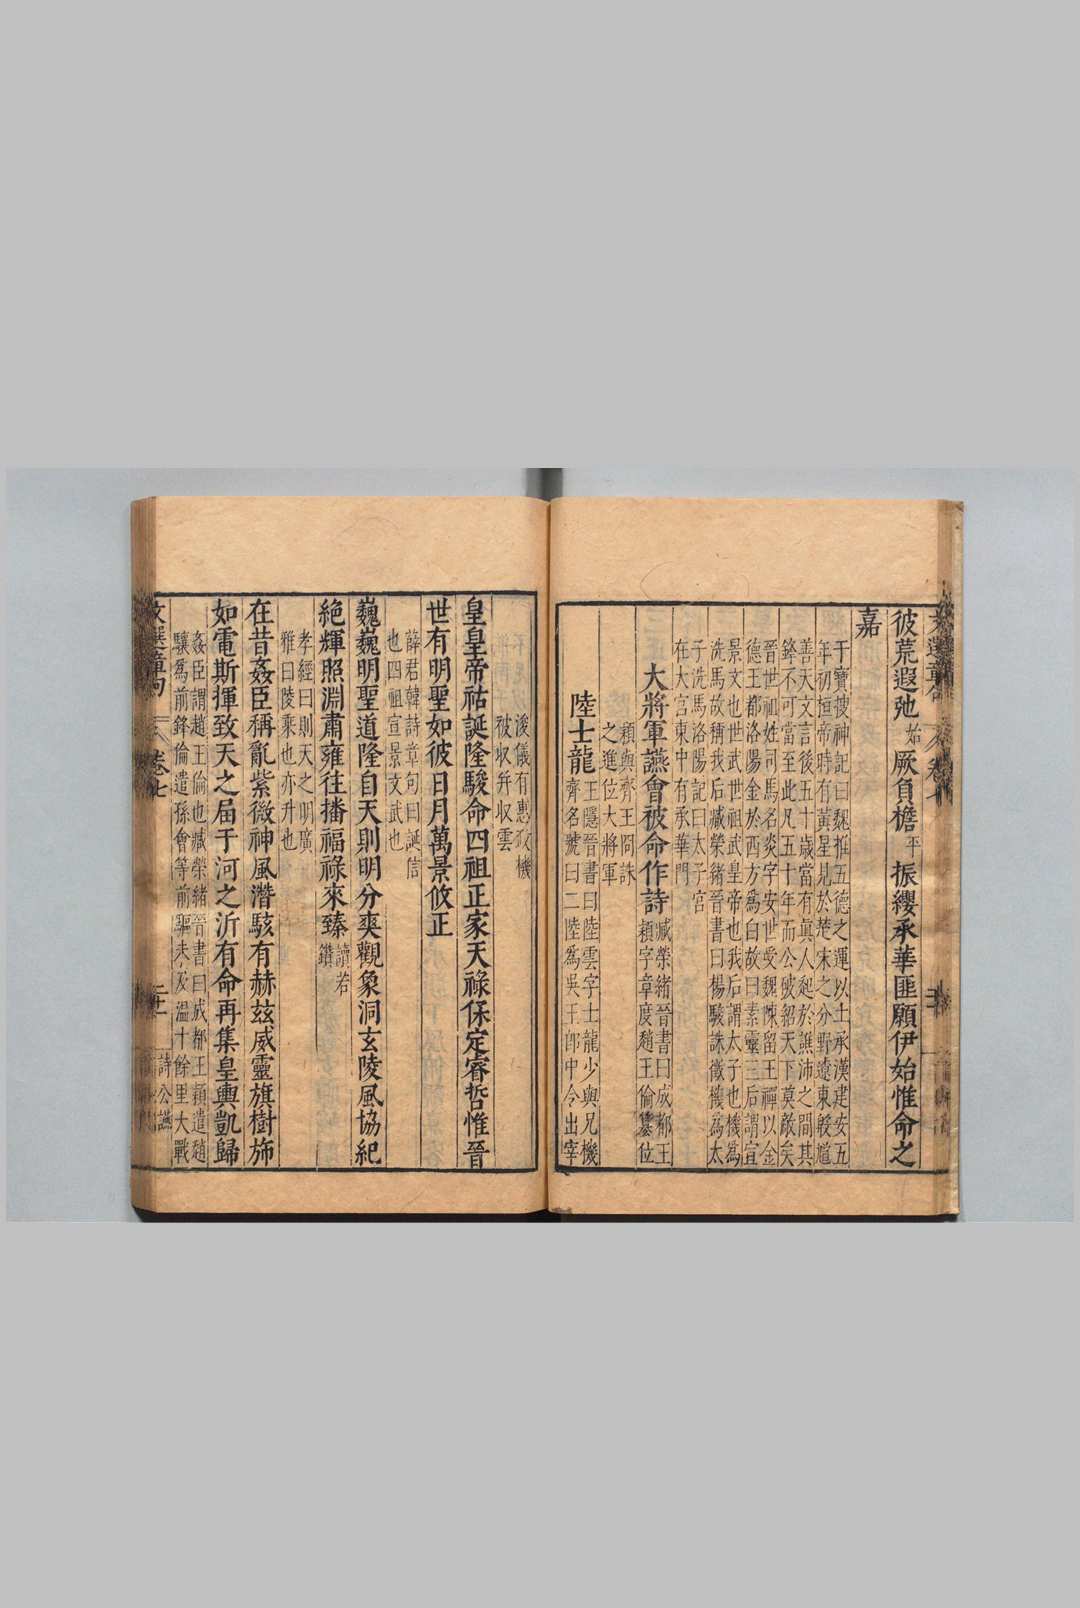 彼荒遐弛始厥負檐平振纓承華匪願伊始惟命之
嘉
于寶搜神記曰魏推五德之運以土承漢建安五
年初桓帝時有黃星見於楚宋之分野遼東殷馗
善天文言後五十歲當有眞人起於譙沛之間其
鋒不可當至此凡五十年而公破紹天下莫敵矣
晉世祖姓司馬名炎字安世受魏陳留王禪以金
德王都洛陽金於西方爲白故曰素靈三后謂宣
景文也世武世祖武皇帝也我后謂太子也機爲
洗馬故稱我后臧榮緒晉書曰楊駿誅徵機爲太
子洗馬洛陽記曰太子宮
在大宮東中有承華門
大將軍讌會被命作詩
臧榮緒晉書曰成都王
穎字章度趙王倫簒位
穎與齊王冏誅
之進位大將軍
陸士龍
王隱晉書曰陸雲字士龍少與兄機
齊名號曰二陸爲吳王郎中令出宰
浚儀有惠政機
被收幷収雲
皇皇帝祜誕隆駿命四祖正家天祿保定睿哲惟晉
世有明聖如彼日月萬景攸正
薛君韓詩章句曰誕信
也四祖宣景文武也
巍巍明聖道隆自天則明分爽觀象洞玄陵風協紀
絶輝照淵肅雍往播福祿來臻
讀若
鑚
孝經曰則天之明廣
雅曰陵乘也亦升也
在昔姦臣稱亂紫微神風潛駭有赫茲威靈旗樹斾
如電斯揮致天之届于河之沂有命再集皇輿凱歸
姦臣謂趙王倫也臧榮緒晉書曰成都王穎遣趙
驤爲前鋒倫遣孫會等前驅未及溫十餘里大戰
文選章句
卷七
二十一
詩公讌